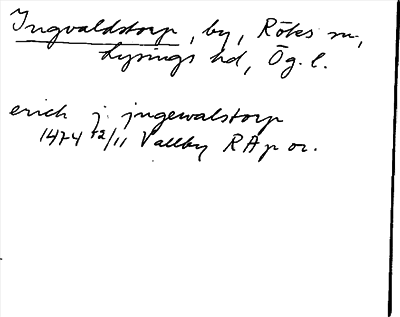 Ingvaldstorp, by, Röks sn,
Lysings hd, Ög. l.
erich j jngewalstorp
1474 12/11 Vallby RAp or.